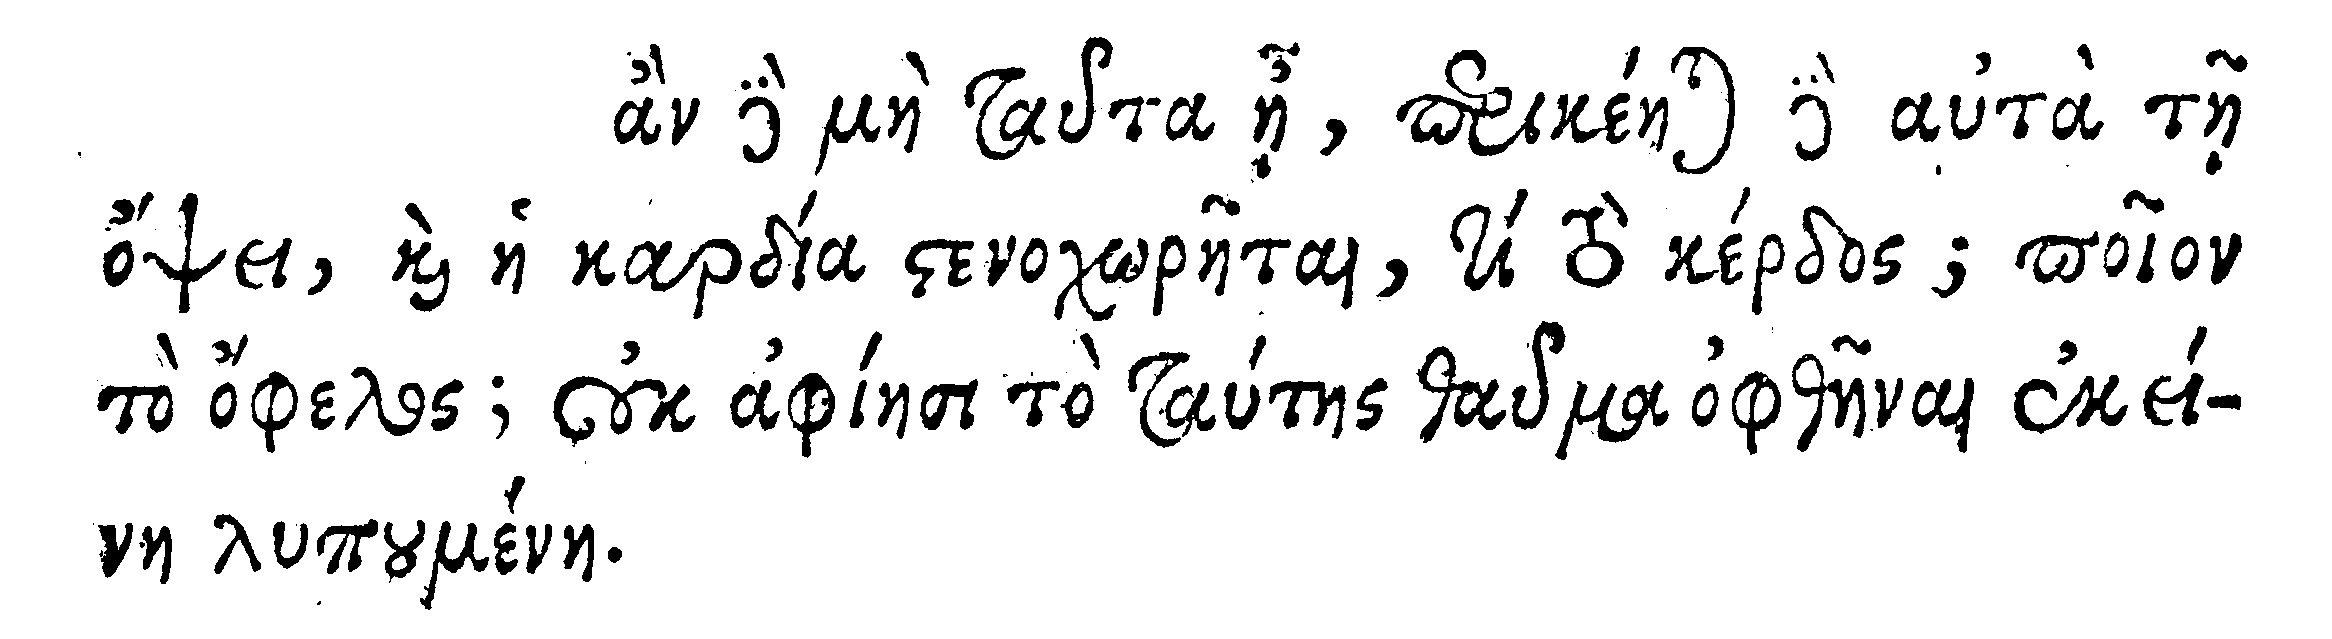 ἂν δὲ μὴ ταῦτα ᾖ, περικέηται δὲ αὐτὰ τῇ
ὄψει, καὶ ἡ καρδία στενοχωρῆται, τί τὸ κέρδος; ποῖον
τὸ ὄφελος; οὐκ ἀφίησι τὸ ταύτης θαῦμα ὀφθῆναι ἐκεί-
νη λυπουμένη.